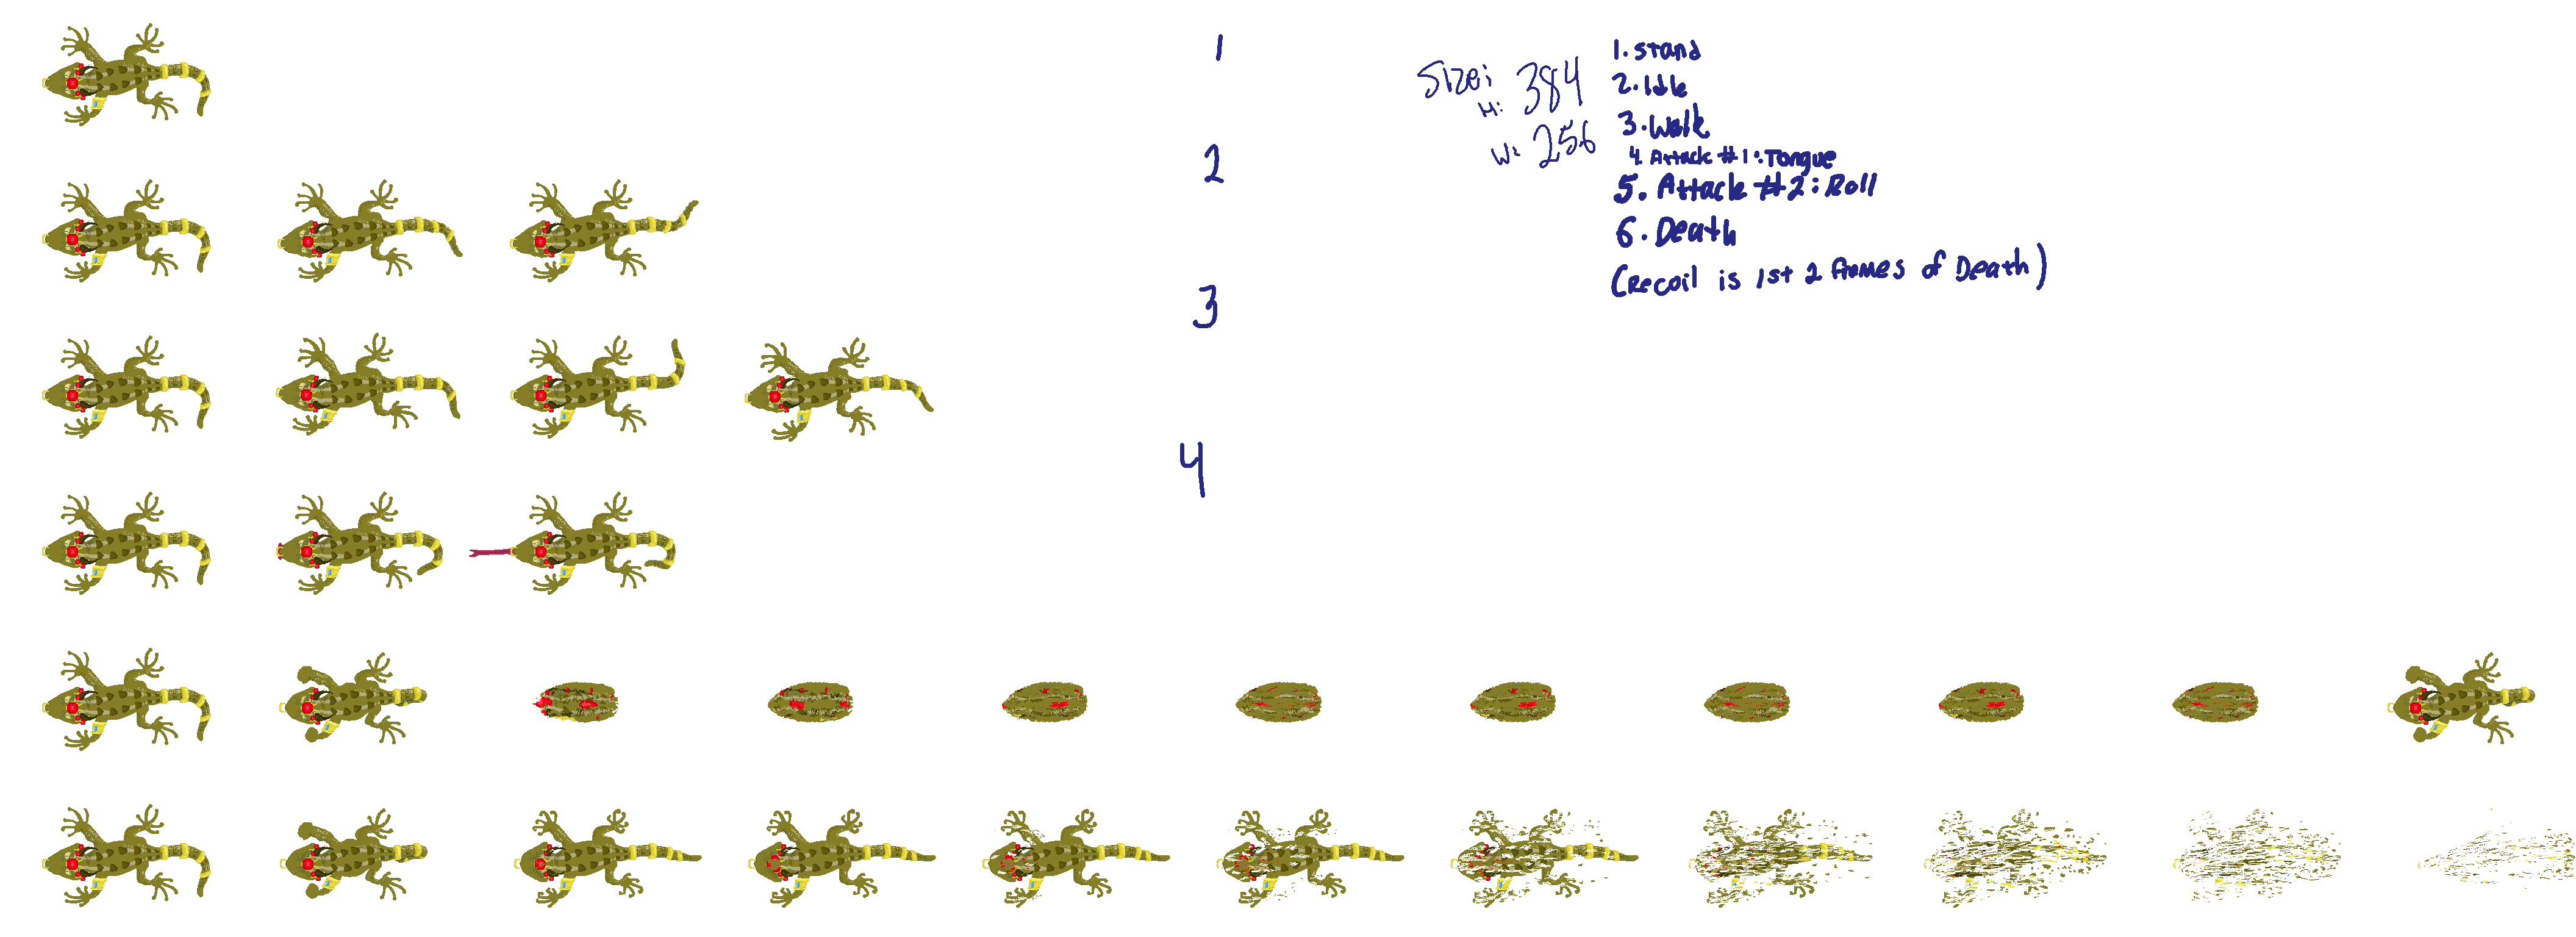 1
2
3
4
Size:
H: 384
W: 256
1. stand
2. Idle
3. Walk
4. Attack #1: Tongue
5. Attack #2: Roll
6. Death
(Recoil is 1st 2 frames of Death)